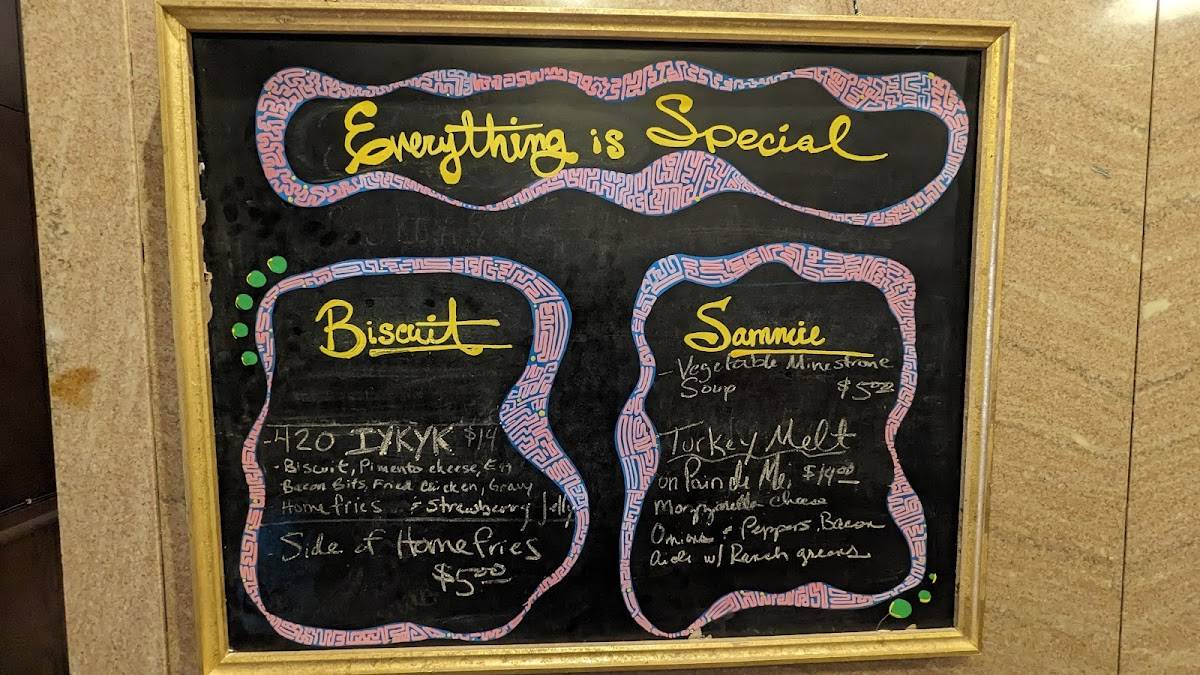 Everything is Special
Biscuit
-420 IYKYK $14
- Biscuit, Pimento cheese, Egg
Bacon Bits, Fried Chicken, Gravy
Homefries & Strawberry Jelly
Side of Homefries
$5.00
Sammie
- Vegetable Minestrone
Soup $5.00
Turkey Melt
on Pain de Mei $14.00
cheese
Onions & Peppers, Bacon
w/ Ranch greens